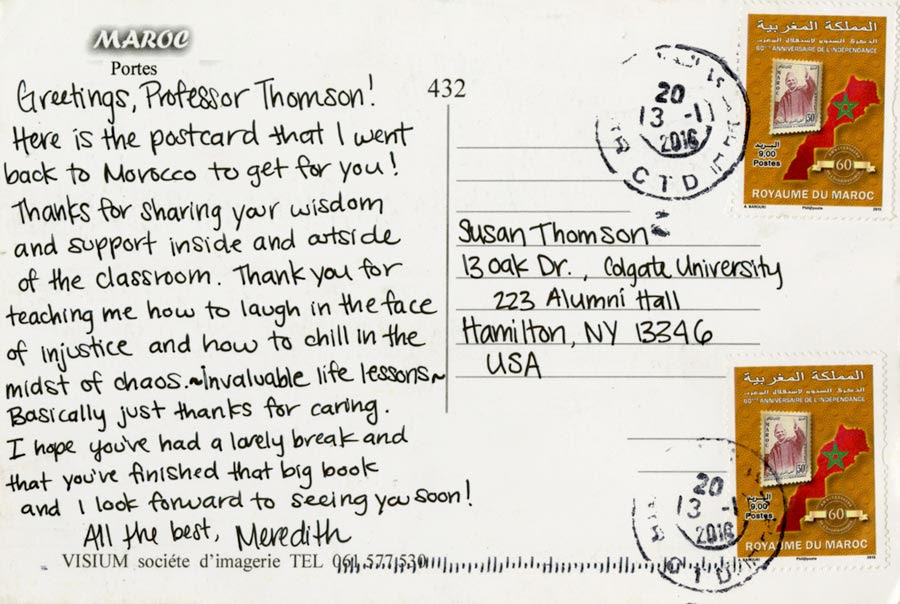 MAROC
Portes
432
Greetings, Professor Thomson!
Here is the postcard that I went
back to Morocco to get for you!
Thanks for sharing your wisdom
and support inside and outside
of the classroom. Thank you for
teaching me how to laugh in the face
of injustice and how to chill in the
midst of chaos.~Invaluable life lessons~
Basically just thanks for caring.
I hope you've had a lovely break and
that you've finished that big book
and I look forward to seeing you soon!
All the best, Meredith
VISIUM sociéte d'imagerie TEL 061 577 530
Susan Thomson
13 Oak Dr., Colgate University
223 Alumni Hall
Hamilton, NY 13346
USA
20
13 -1
2016
CTD
المملكة المغربية
60ème ANNIVERSAIRE DE L'INDEPENDANCE
MAROC
50
البريد
9,00
Postes
60
ROYAUME DU MAROC
2015
20
13 -1
2016
CTD
المملكة المغربية
60ème ANNIVERSAIRE DE L'INDEPENDANCE
MAROC
50
البريد
9,00
Postes
60
ROYAUME DU MAROC
2015